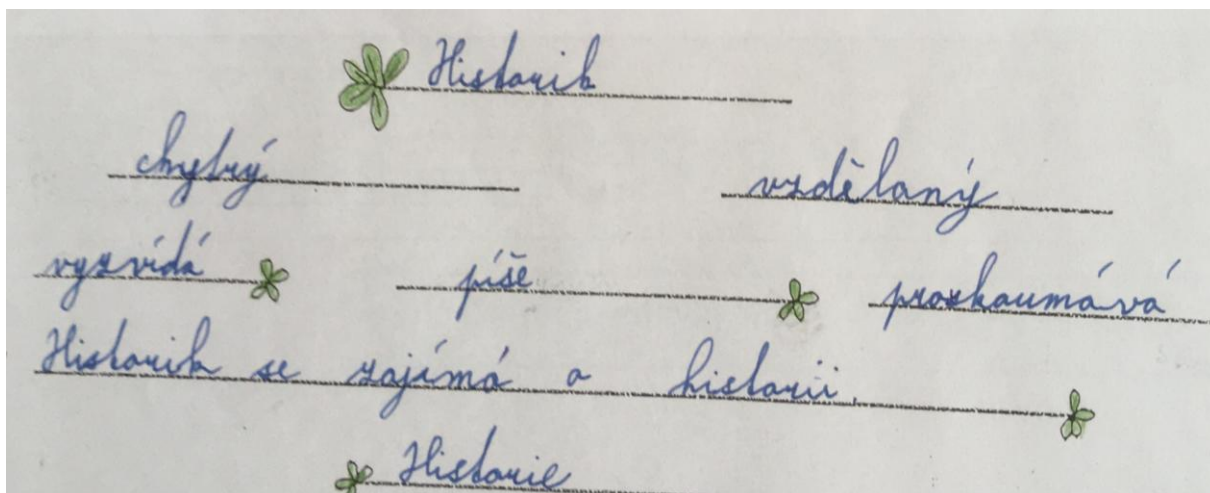 Historik
chytrý vzdělaný
vyzvídá píše prozkoumává
Historik se zajímá o historii.
Historie